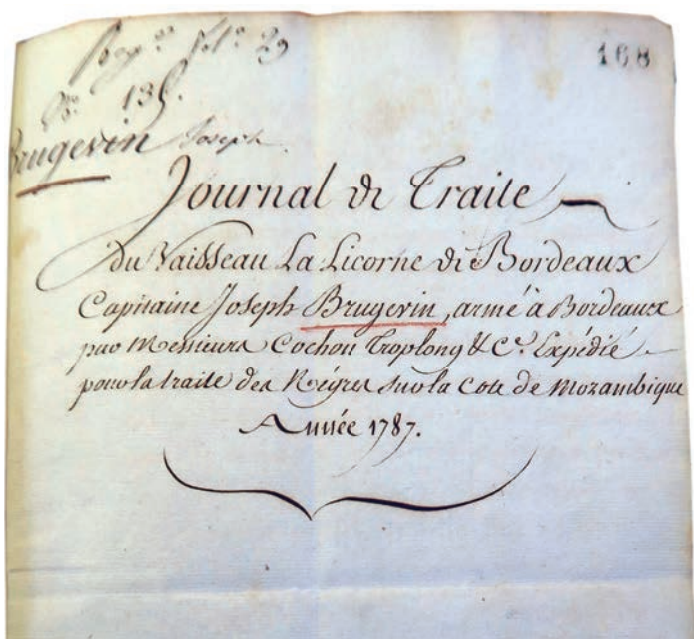 168
135.
Brugevin Joseph
Journal de Traite
du Vaisseau La Licorne de Bordeaux
Capitaine Joseph Brugevin, armé à Bordeaux
par Messieurs Cochon Troplong & Cie. Expédié
pour la traite des Négres sur la Cote de Mozambique
Année 1787.